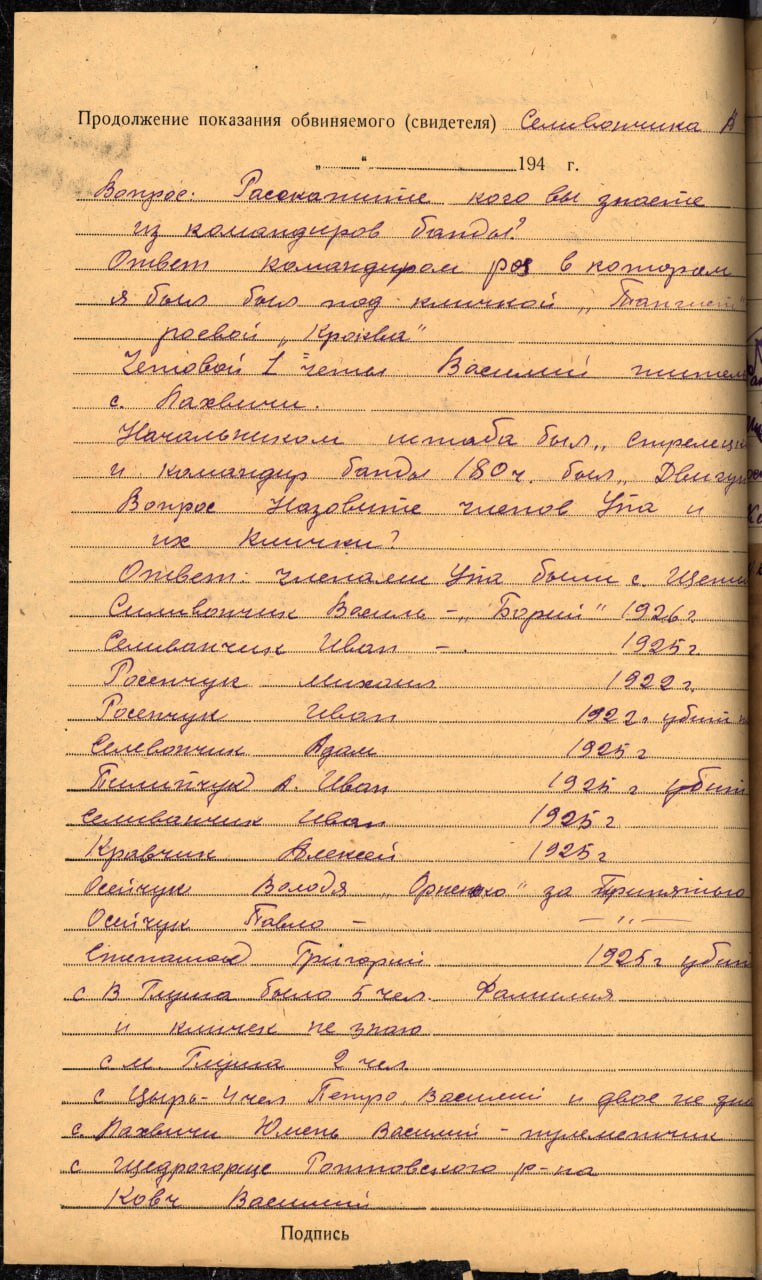 Продолжение показания обвиняемого (свидетеля) Селивончика А
„ “ 194 г.
Вопрос: Расскажите кого вы знаете
из командиров банды?
Ответ командиром роя в котором
я был был под кличкой
роевой „Кроква“
Четовой 1 четы Василий жител
с. Лахвичи.
Начальником штаба был „Стрелец
и командир банды 180 ч. был „Двигун
Вопрос Назовите членов Упа и
их клички?
Ответ: членами Упа были с.
Силивончик Василь – „Борий“ 1926 г
Селиванчик Иван –. 1925 г
Росенчук Михаил 1922 г.
Росенчук Иван 1922. убит
Селевончик Адам 1925 г
Пилипчук А. Иван 1925 г убит
Селиванчик Иван 1925 г
Кравчик Алексей 1925 г
Осейчук Володя за Припятью
Осейчук Павло – – „ –
Григорий 1925 г убит
с В Глуша было 5 чел. Фамилия
и кличек не знаю
с М. Глуша 2 чел
с Цырь – 4 чел Петро, Василий и двое не зна
с. Лахвичи Юмень Василий – пулеметчик
с Щедрогорще Ратновского р-на
Ковч Василий
Подпись